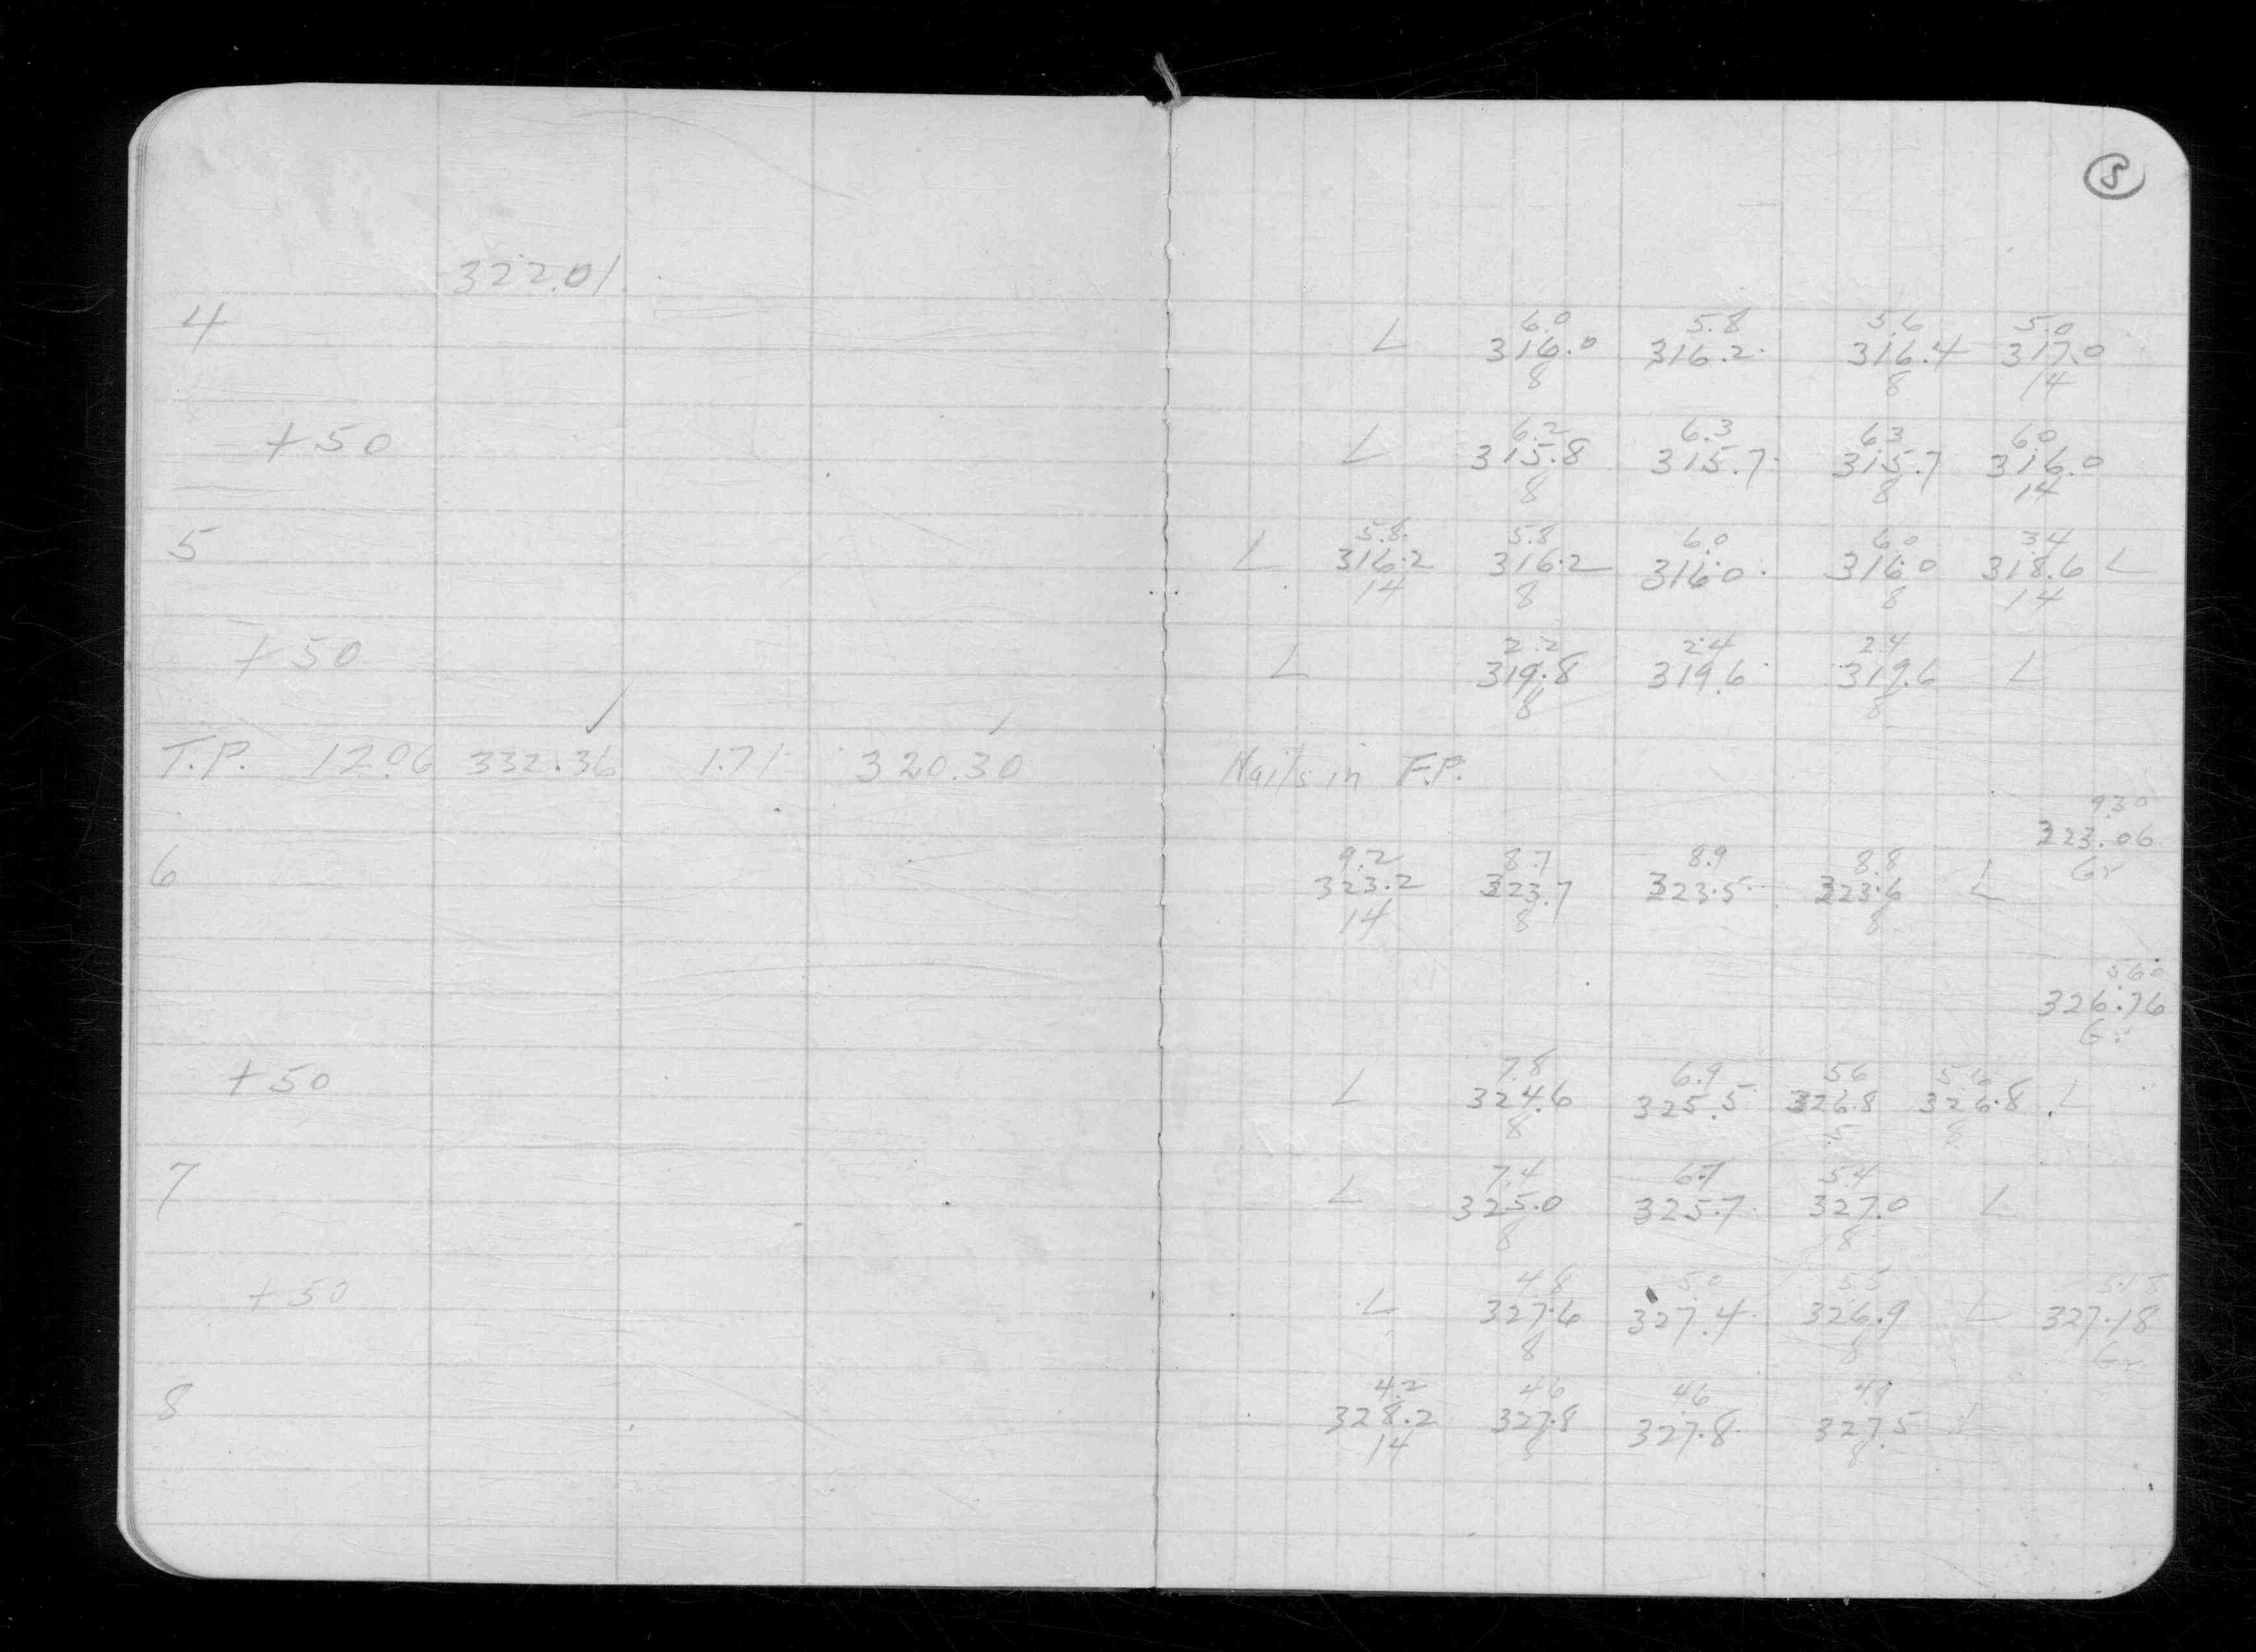 8
322.01
4
L 6.0 5.8 5.6 5.0
316.0 316.2 316.4 317.0
8 8 14
+50
L 6.2 6.3 6.3 6.0
315.8 315.7 315.7 316.0
8 8 14
5
5.8 5.8 6.0 6.0 3.4
L 316.2 316.2 316.0 316.0 318.6 L
14 8 8 14
+50
2.2 2.4 2.4
L 319.8 319.6 319.6 L
8 8
T.P. 12.06 332.36 1.71 320.30 Nails in F.P.
9.30
323.06
Gr
6
9.2 8.7 8.9 8.8
323.2 323.7 323.5 323.6 L
14 8 8
5.60
326.76
Gr
+50
7.8 6.9 5.6 5.6
L 324.6 325.5 326.8 326.8 L
8 8
7
7.4 6.7 5.4
L 325.0 325.7 327.0 L
8 8
+50
4.8 5.0 5.5 5.18
L 327.6 327.4 326.9 L 327.18
8 8 Gr
8
4.2 4.6 4.6 4.9
328.2 327.8 327.8 327.5 L
14 8 8